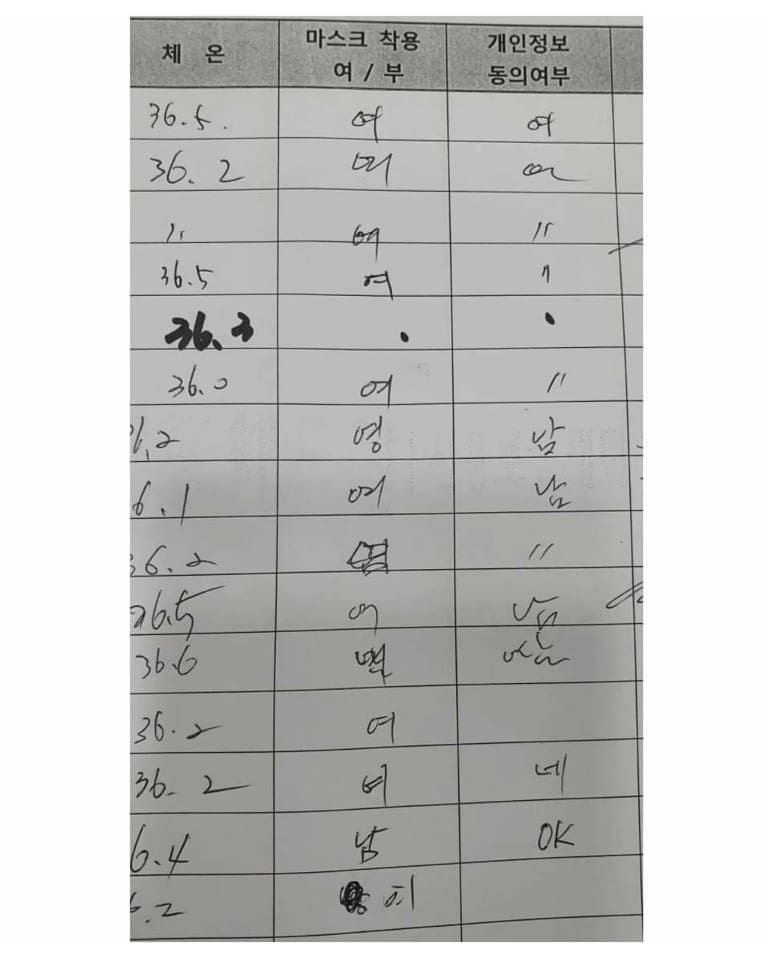 체 온 마스크 착용 여 / 부 개인정보 동의여부
36.5. 여 여
36.2 여
〃 여 〃
36.5 여 〃
36.3 . .
36.0 여 〃
6.2 영 남
6.1 여 남
36.2 〃
36.5 여 남
36.6
36.2 여
36.2 여 네
6.4 남 OK
6.2